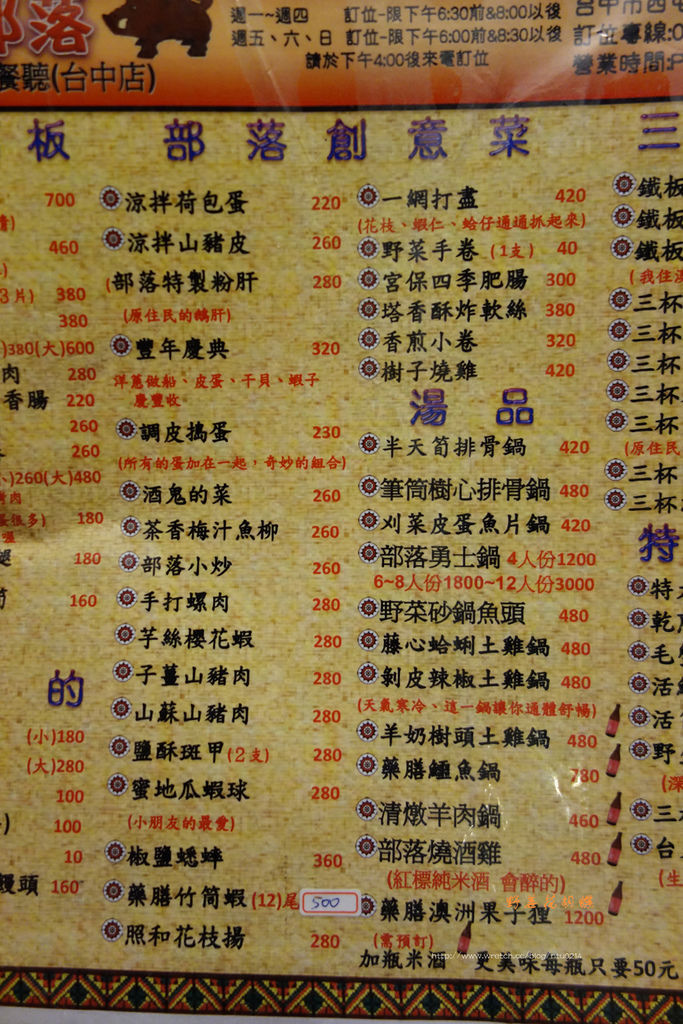 部落
餐聽(台中店)
週一~週四 訂位-限下午6:30前&8:00以後
週五、六、日 訂位-限下午6:00前&8:30以後
請於下午4:00後來電訂位
台中市西屯
訂位專線:0
營業時間:P
板
700
460
3片) 380
380
)380(大)600
肉 280
香腸 220
260
260
)260(大)480
180
180
160
的
(小)180
(大)280
100
100
10
饅頭 160
部落創意菜
涼拌荷包蛋 220
涼拌山豬皮 260
(部落特製粉肝 280
(原住民的鵝肝)
豐年慶典 320
洋蔥做船、皮蛋、干貝、蝦子
慶豐收
調皮搗蛋 230
(所有的蛋加在一起，奇妙的組合)
酒鬼的菜 260
茶香梅汁魚柳 260
部落小炒 260
手打螺肉 280
芋絲櫻花蝦 280
子薑山豬肉 280
山蘇山豬肉 280
鹽酥斑甲(2支) 280
蜜地瓜蝦球 280
(小朋友的最愛)
椒鹽蟋蟀 360
藥膳竹筒蝦(12)尾 500
照和花枝揚 280
一網打盡 420
(花枝、蝦仁、蛤仔通通抓起來)
野菜手卷(1支) 40
宮保四季肥腸 300
塔香酥炸軟絲 380
香煎小卷 320
樹子燒雞 420
湯品
半天筍排骨鍋 420
筆筒樹心排骨鍋 480
刈菜皮蛋魚片鍋 420
部落勇士鍋 4人份1200
6~8人份1800~12人份3000
野菜砂鍋魚頭 480
藤心蛤蜊土雞鍋 480
剝皮辣椒土雞鍋 480
(天氣寒冷、這一鍋讓你通體舒暢)
羊奶樹頭土雞鍋 480
藥膳鱷魚鍋 780
清燉羊肉鍋 460
部落燒酒雞 480
(紅標純米酒 會醉的)
藥膳澳洲果子狸 1200
(需預訂)
加瓶米酒 更美味每瓶只要50元
http://www.wretch.cc/blog/ntu0214
三
鐵板
鐵板
鐵板
(我住
三杯
三杯
三杯
三杯
三杯
(原住民
三杯
三杯
特
特
乾
毛
活
活
野
(深
三
台
(生